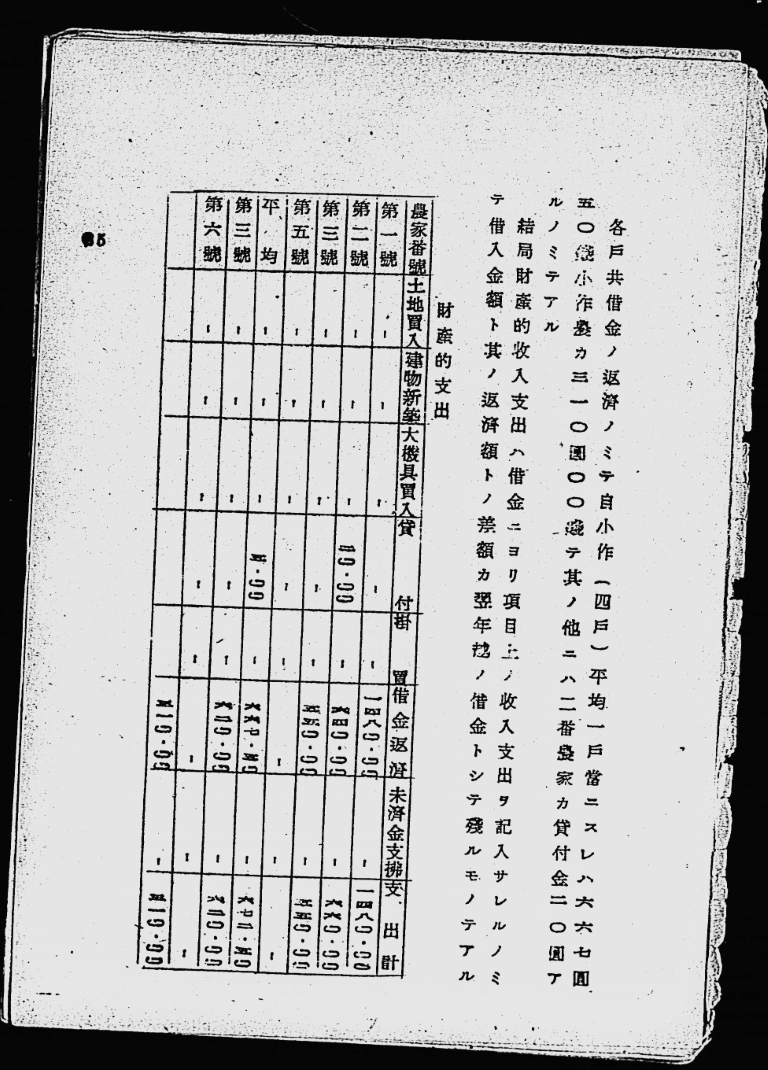 各戸共借金ノ返済ノミテ自小作(四戸)平均一戸當ニスレハ六六七圓
五〇錢小作農カ三一〇圓〇〇錢テ其ノ他ニハ二番農家カ貸付金二〇圓ア
ルノミテアル
結局財産的收入支出ハ借金ニヨリ項目上ノ收入支出ヲ記入サレルノミ
テ借入金額ト其ノ返済額トノ差額カ翌年越ノ借金トシテ殘ルモノテアル
財産的支出
農家番號 土地買入 建物新築 大機具買入 貸付 掛買 借金返済 未済金支拂 支出計
第一號 - - - - - 一四八〇・〇〇 - 一四八〇・〇〇
第二號 - - - 二〇・〇〇 - 六四〇・〇〇 - 六六〇・〇〇
第三號 - - - - - 五五〇・〇〇 - 五五〇・〇〇
第五號 - - - - - - - -
平均 - - - 五・〇〇 - 六六七・五〇 - 六七二・五〇
第三號 - - - - - 六二〇・〇〇 - 六二〇・〇〇
第六號 - - - - - - - -
三一〇・〇〇 - 三一〇・〇〇